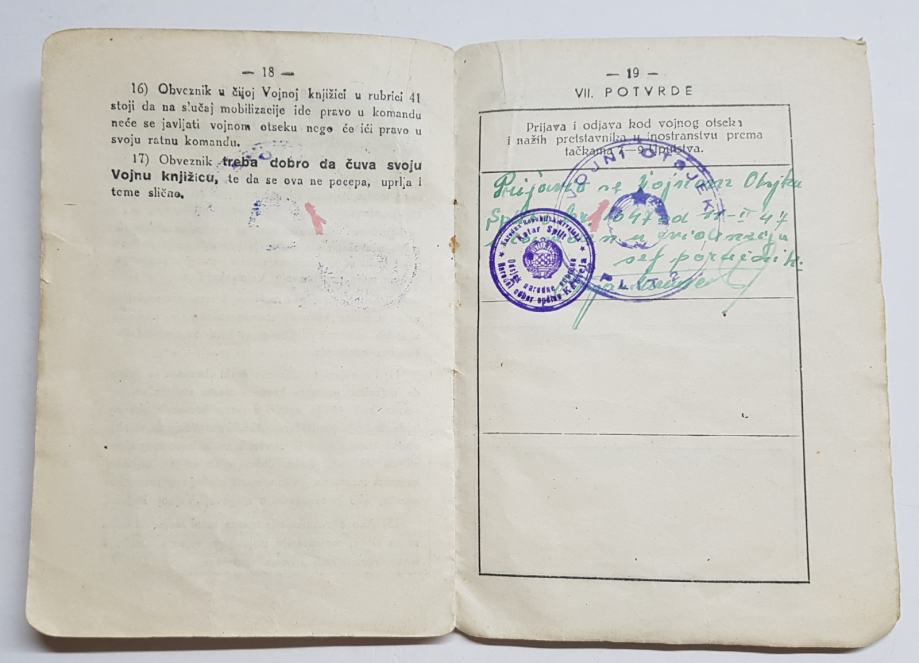 — 18 —
16) Obveznik u čijoj Vojnoj knjižici u rubrici 41
stoji da na slučaj mobilizacije ide pravo u komandu
neće se javljati vojnom otseku nego će ići pravo u
svoju ratnu komandu.
17) Obveznik treba dobro da čuva svoju
Vojnu knjižicu, te da se ova ne pocepa, uprlja i
tome slično.
— 19 —
VII. POTVRDE
Prijava i odjava kod vojnog otseka
i naših pretstavnika u inostranstvu prema
tačkama 7—9 Uputstva.
se Vojnom
1047 od 11-II 47
u evidenciju
VOJNI OTSJEK
Narodna Republika Hrvatska
Kotar Split
Odsjek narodne
Narodni odbor općine